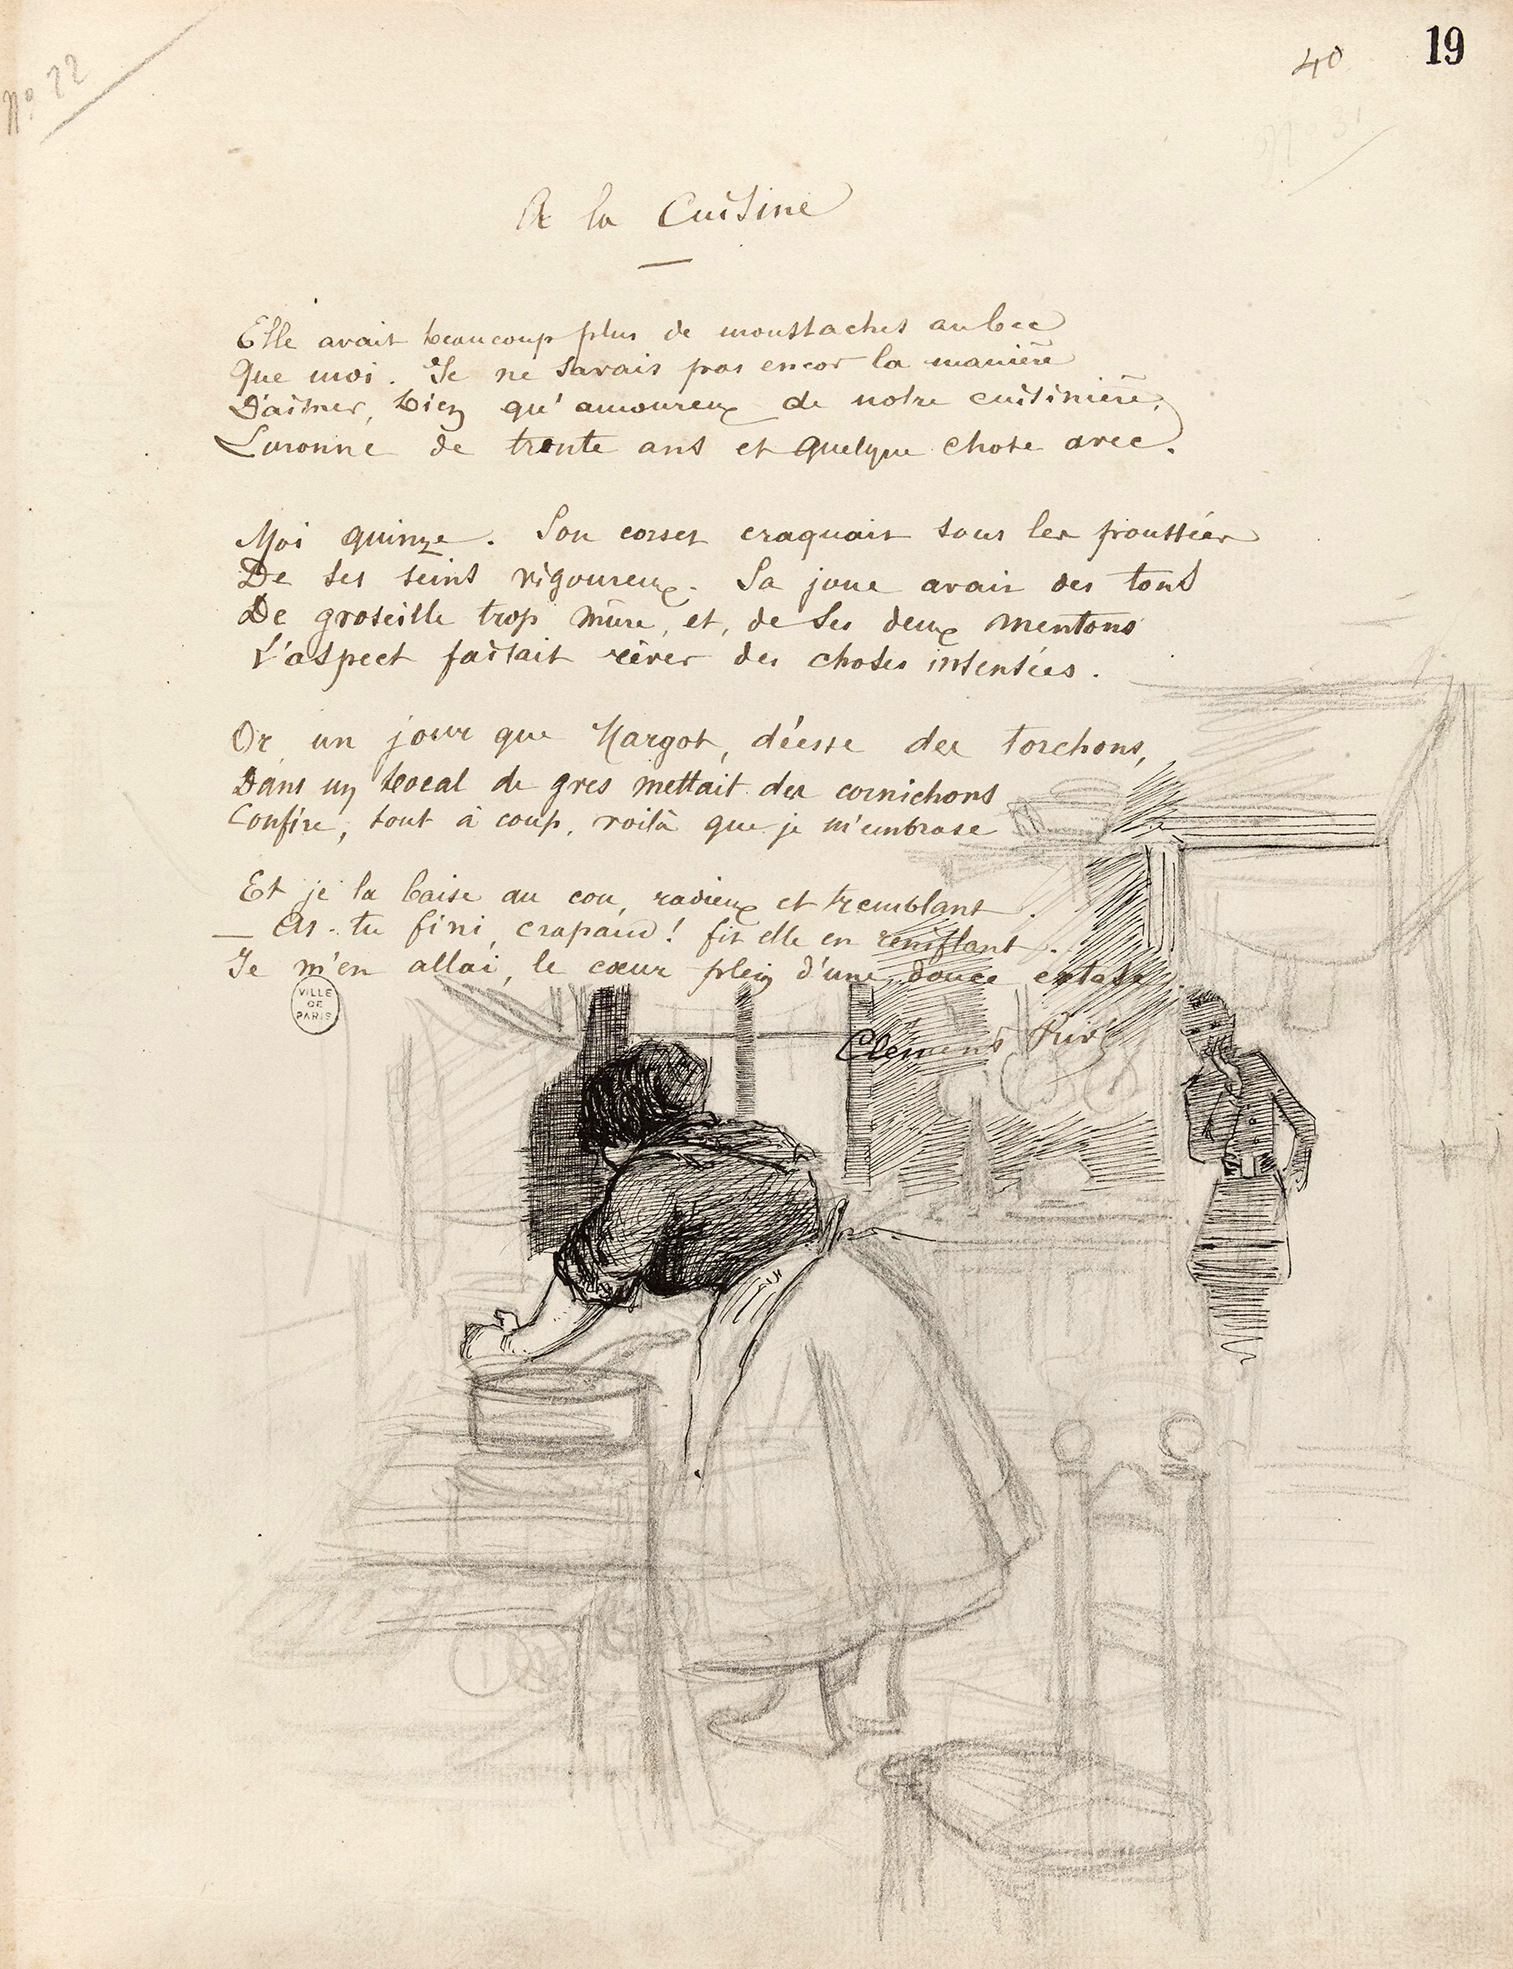 N° 22
40
19
N° 31
A la Cuisine
Elle avait beaucoup plus de moustaches au bec
Que moi. Je ne savais pas encor la manière
D'aimer, bien qu'amoureux de notre cuisinière,
Luronne de trente ans et quelque chose avec.
Moi quinze. Son corset craquait sous les poussées
De ses seins vigoureux. Sa joue avait des tons
De groseille trop mûre, et, de ses deux mentons
L'aspect faisait rêver des choses insensées.
Or, un jour que Margot, déesse des torchons,
Dans un bocal de gres mettait des cornichons
Confire, tout à coup, voilà que je m'embrase
Et je la baise au cou, radieux et tremblant.
— As-tu fini, crapaud! fit elle en reniflant.
Je m'en allai, le cœur plein d'une douce extase.
VILLE
DE
PARIS
Clémens Privé